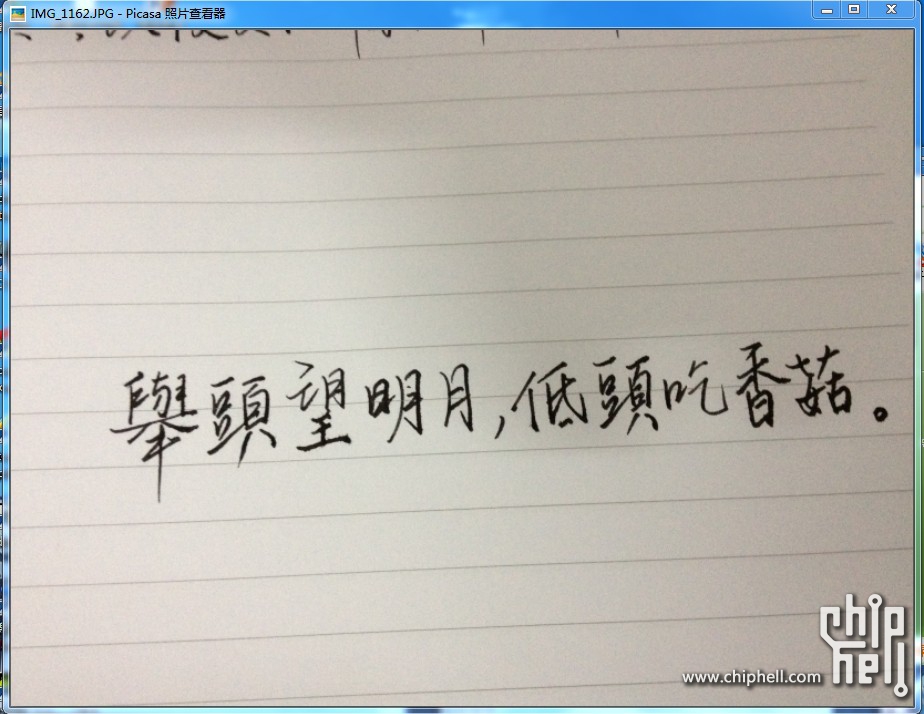 IMG_1162.JPG - Picasa 照片查看器
舉頭望明月,低頭吃香菇。
chip
hell
www.chiphell.com